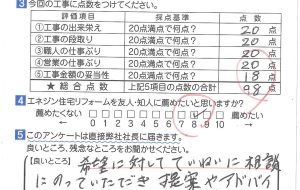 3 今回の工事に点数をつけてください。
評価項目 採点基準 点数
①工事の出来栄え 20点満点で何点? 20 点
②工事の段取り 20点満点で何点? 20 点
③職人の仕事ぶり 20点満点で何点? 20 点
④営業の仕事ぶり 20点満点で何点? 20 点
⑤工事金額の妥当性 20点満点で何点? 18 点
★総合点 上記5項目の点数の合計 98 点
4 エネジン住宅リフォームを友人・知人に薦めたいと思いますか?
薦めたくない どちらでもない 薦めたい
0 1 2 3 4 5 6 7 8 9 10
5 このアンケートは直接弊社社長に届きます。
良いところ、残念なところをお聞かせください。
【良いところ】 希望に対していねいに相談
にのっていただき 提案やアドバイ